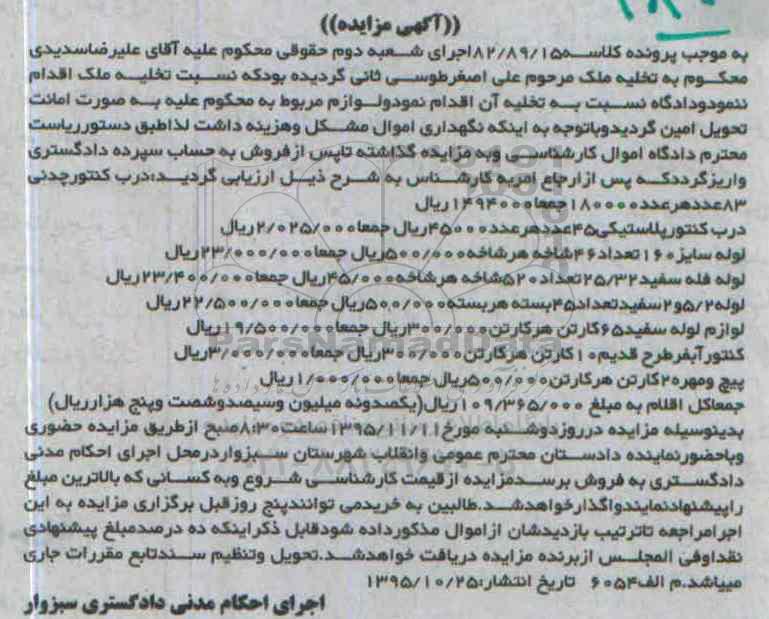 ((آگهی مزایده))
به موجب پرونده کلاسه۸۲/۸۹/۱۵اجرای شعبه دوم حقوقی محکوم علیه آقای علیرضاسدیدی
محکوم به تخلیه ملک مرحوم علی اصغرطوسی ثانی گردیده بودکه نسبت تخلیه ملک اقدام
ننمودودادگاه نسبت به تخلیه آن اقدام نمودولوازم مربوط به محکوم علیه به صورت امانت
تحویل امین گردیدوباتوجه به اینکه نگهداری اموال مشکل وهزینه داشت لذاطبق دستورریاست
محترم دادگاه اموال کارشناسی وبه مزایده گذاشته تاپس ازفروش به حساب سپرده دادگستری
واریزگرددکه پس ازارجاع امربه کارشناس به شرح ذیل ارزیابی گردید:درب کنتورچدنی
۸۳عددهرعدد۱۸۰۰۰۰جمعا۱۴۹۴۰۰۰ریال
درب کنتورپلاستیکی۴۵عددهرعدد۴۵۰۰۰ریال جمعا۲/۰۲۵/۰۰۰ریال
لوله سایز۱۶۰تعداد۴۶شاخه هرشاخه۵۰۰/۰۰۰ریال جمعا۲۳/۰۰۰/۰۰۰ریال
لوله فله سفید۲۵/۳۲تعداد۵۲۰شاخه هرشاخه۴۵/۰۰۰ریال جمعا۲۳/۴۰۰/۰۰۰ریال
لوله۵/۲و۲سفیدتعداد۴۵بسته هربسته۵۰۰/۰۰۰ریال جمعا۲۲/۵۰۰/۰۰۰ریال
لوازم لوله سفید۶۵کارتن هرکارتن۳۰۰/۰۰۰ریال جمعا۱۹/۵۰۰/۰۰۰ریال
کنتورآبفرطرح قدیم۱۰کارتن هرکارتن۳۰۰/۰۰۰ریال جمعا۳/۰۰۰/۰۰۰ریال
پیچ ومهره۲۰کارتن هرکارتن۵۰۰/۰۰۰ریال جمعا۱/۰۰۰/۰۰۰ریال
جمعاکل اقلام به مبلغ ۱۰۹/۳۶۵/۰۰۰ریال(یکصدونه میلیون وسیصدوشصت وپنج هزارریال)
بدینوسیله مزایده درروزدوشنبه مورخ۱۳۹۵/۱۱/۱۱ساعت۸:۳۰صبح ازطریق مزایده حضوری
وباحضورنماینده دادستان محترم عمومی وانقلاب شهرستان سبزواردرمحل اجرای احکام مدنی
دادگستری به فروش برسدمزایده ازقیمت کارشناسی شروع وبه کسانی که بالاترین مبلغ
راپیشنهادنمایندواگذارخواهدشد.طالبین به خریدمی توانندپنج روزقبل برگزاری مزایده به این
اجرامراجعه تاترتیب بازدیدشان ازاموال مذکورداده شودقابل ذکراینکه ده درصدمبلغ پیشنهادی
نقداوفی المجلس ازبرنده مزایده دریافت خواهدشد.تحویل وتنظیم سندتابع مقررات جاری
میباشد.م الف۶۰۵۴ تاریخ انتشار:۱۳۹۵/۱۰/۲۵
اجرای احکام مدنی دادگستری سبزوار
ParsNamadData